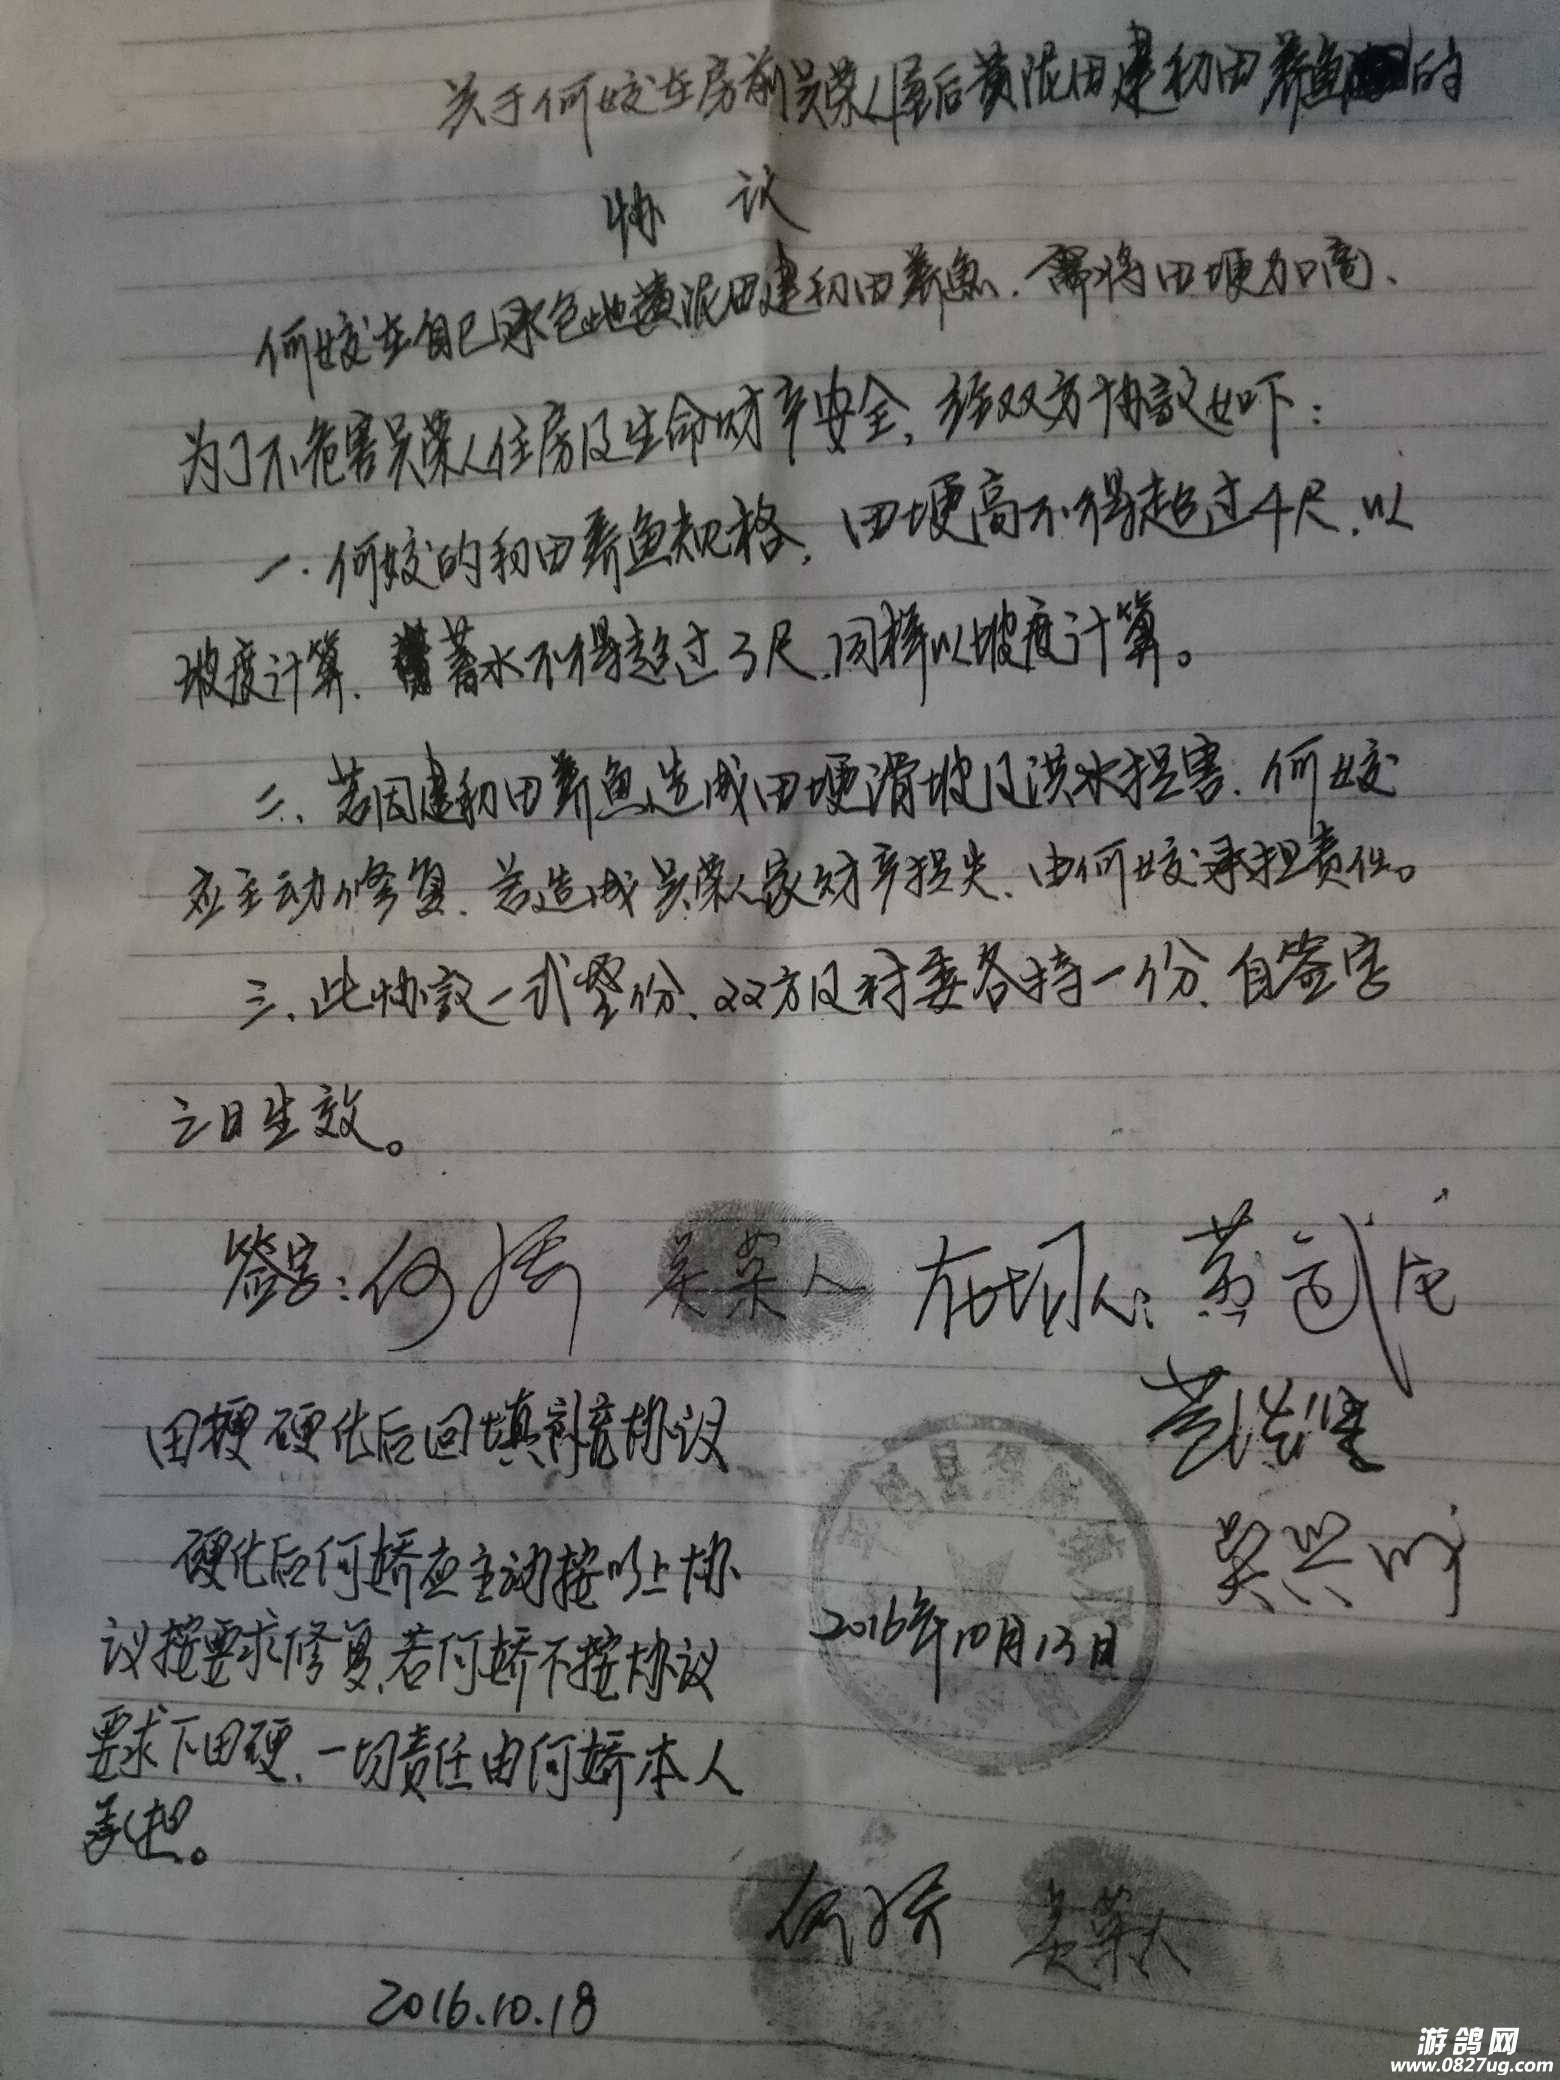 关于何姣在房前吴荣人屋后黄泥田建初田养鱼的
协 议
何姣在自己承包地黄泥田建初田养鱼，需将田埂加高、
为了不危害吴荣人住房及生命财产安全，经双方协议如下：
一. 何姣的初田养鱼规格，田埂高不得超过4尺，以
坡度计算，蓄水不得超过3尺，同样以坡度计算。
二、若因建初田养鱼造成田埂滑坡及洪水损害，何姣
应主动修复，若造成吴荣人家财产损失、由何姣承担责任。
三、此协议一式叁份、双方及村委各持一份、自签字
之日生效。
签字：何娇 吴荣人 在场人：黄
吴兴
田埂硬化后回填补充协议
硬化后何娇应主动按以上协
2016年10月13日
议按要求修复，若何娇不按协议
要求下田硬，一切责任由何娇本人
承担。
何娇 吴荣人
2016.10.18
游鸽网
www.0827ug.com